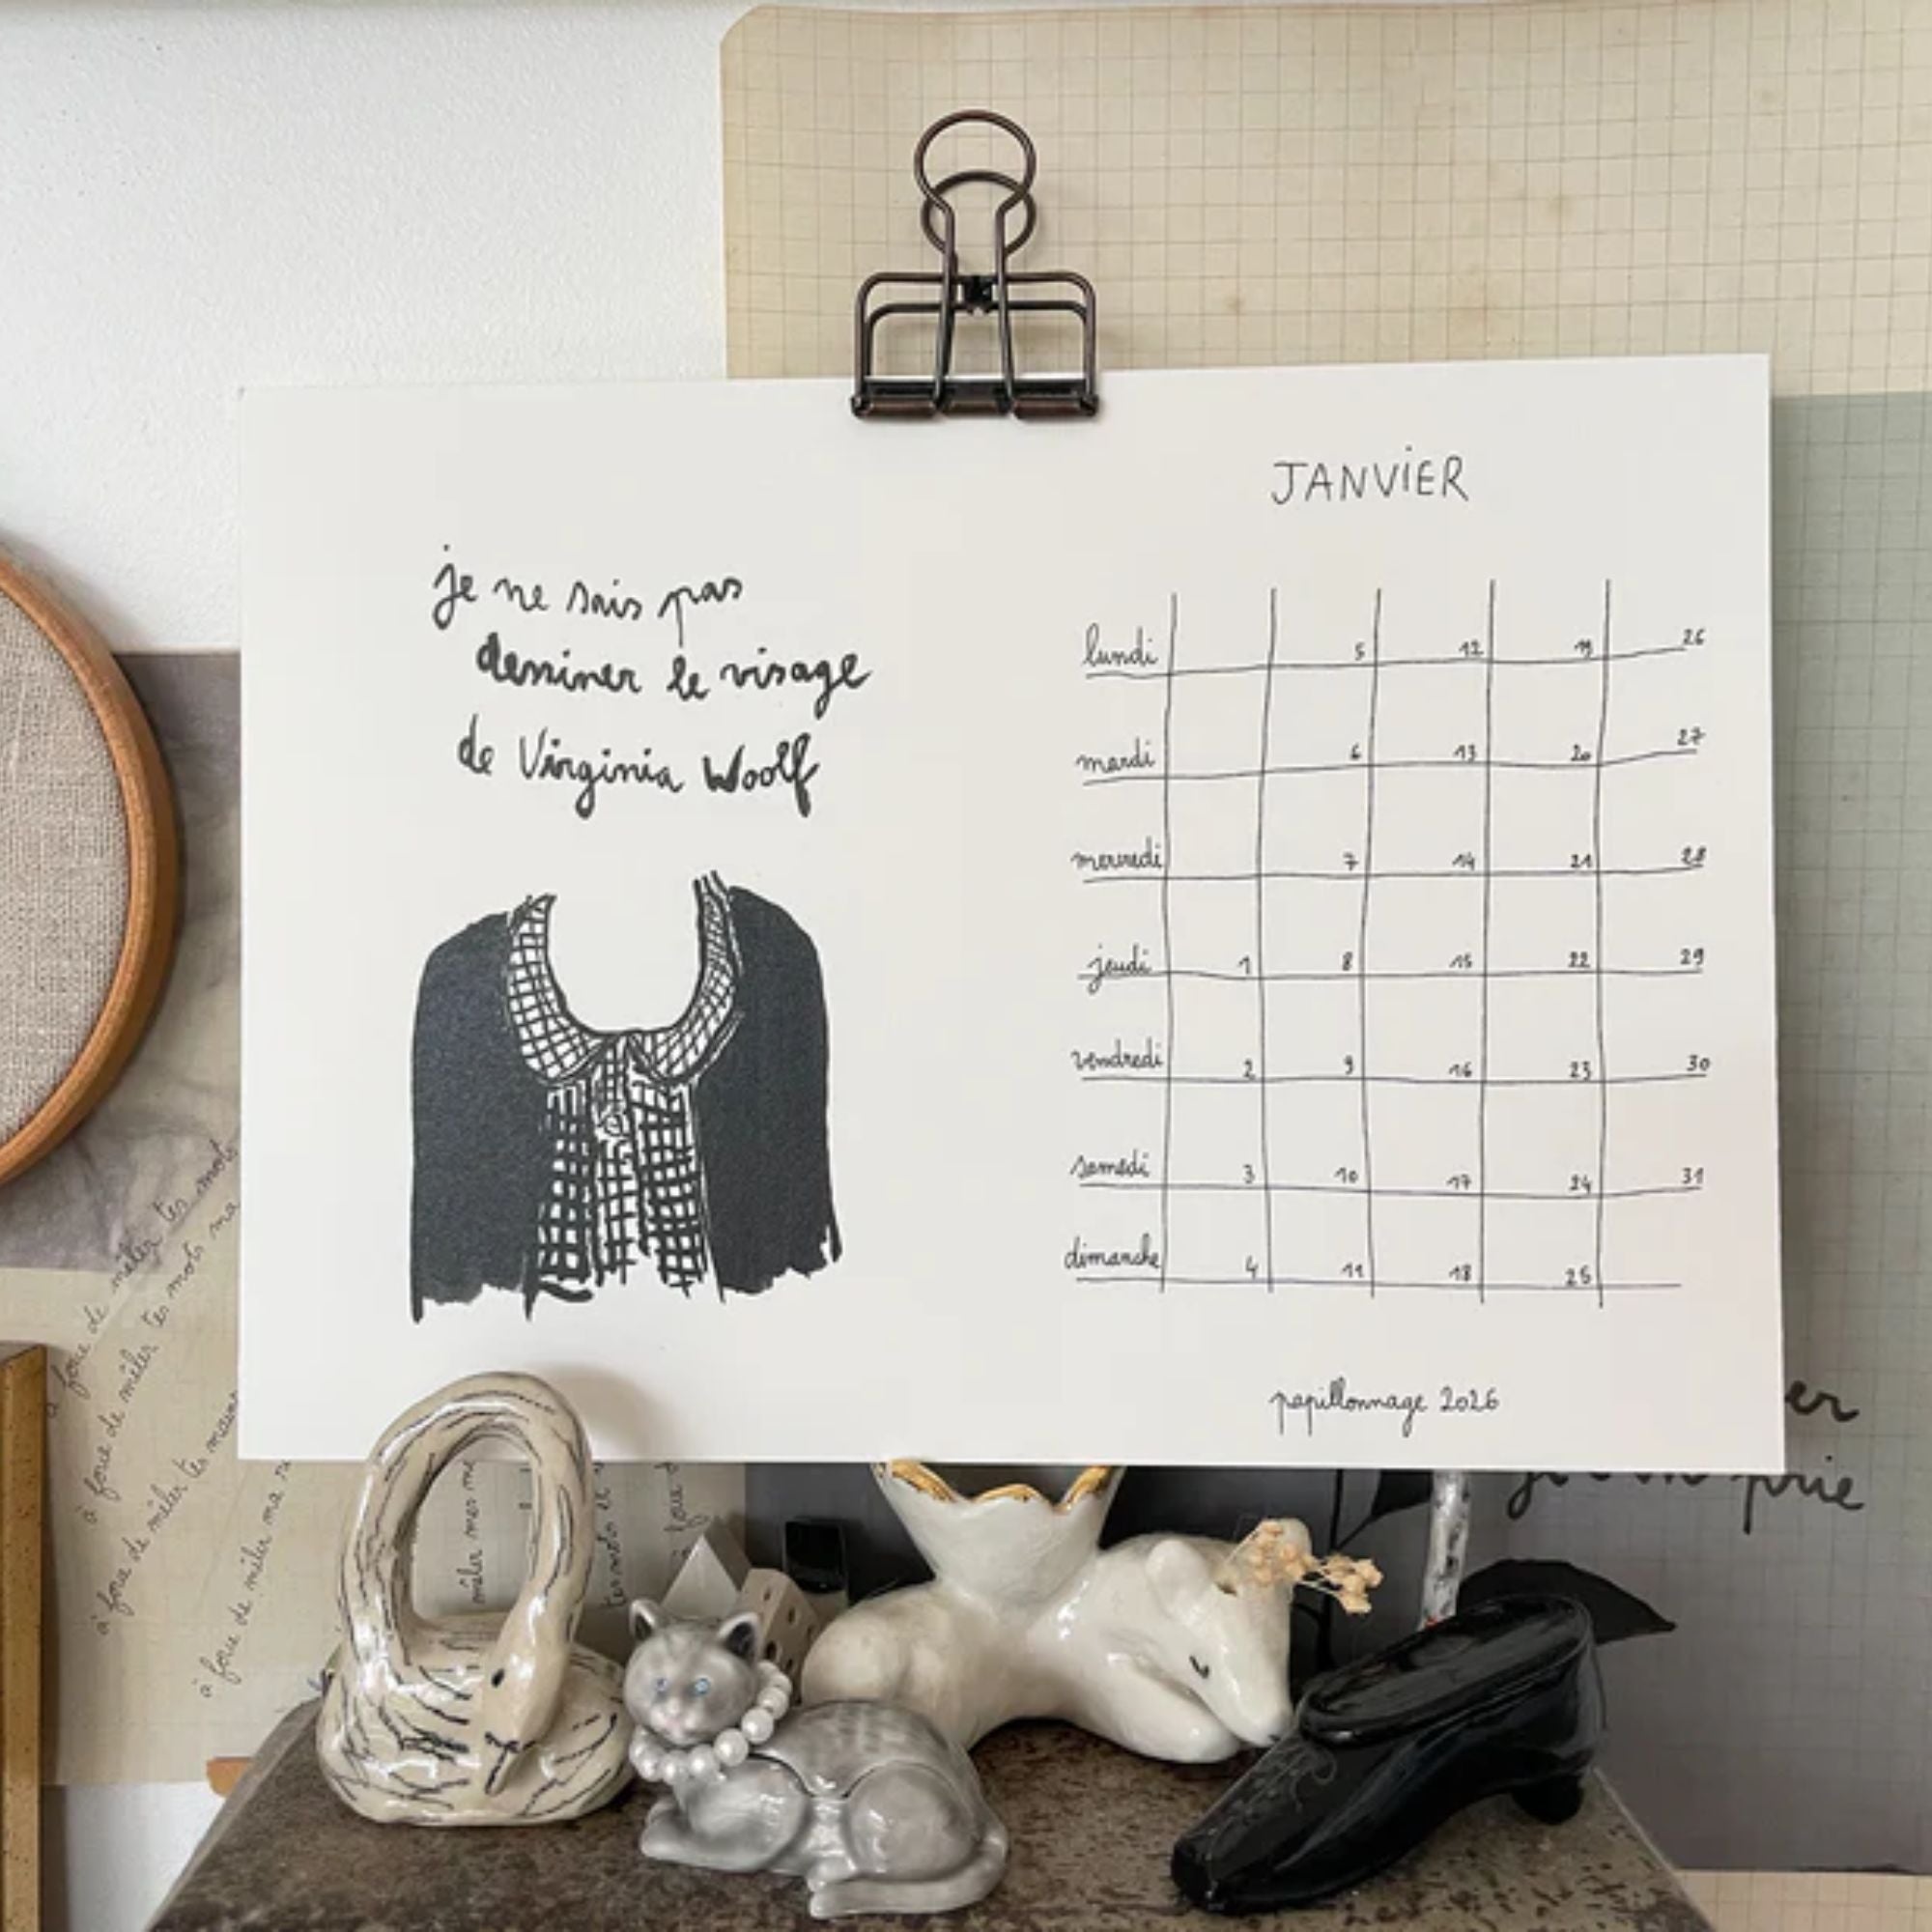 je ne sais pas
dessiner le visage
de Virginia Woolf
JANVIER
lundi 5 12 19 26
mardi 6 13 20 27
mercredi 7 14 21 28
jeudi 1 8 15 22 29
vendredi 2 9 16 23 30
samedi 3 10 17 24 31
dimanche 4 11 18 25
papillonnage 2026
à force de mêler tes mots
à force de mêler tes mots ma
à force de mêler tes mains
à force de mêler ma
mêler mes
tes mots et
à force d
er
prie